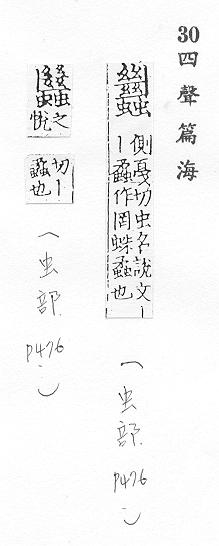 30四聲篇海
蠿
側戛切虫名說文丨
丨蟊作罔蛛蟊也
（虫部 P476.）
之悅
切丨
蟊也
（虫部 P476.）